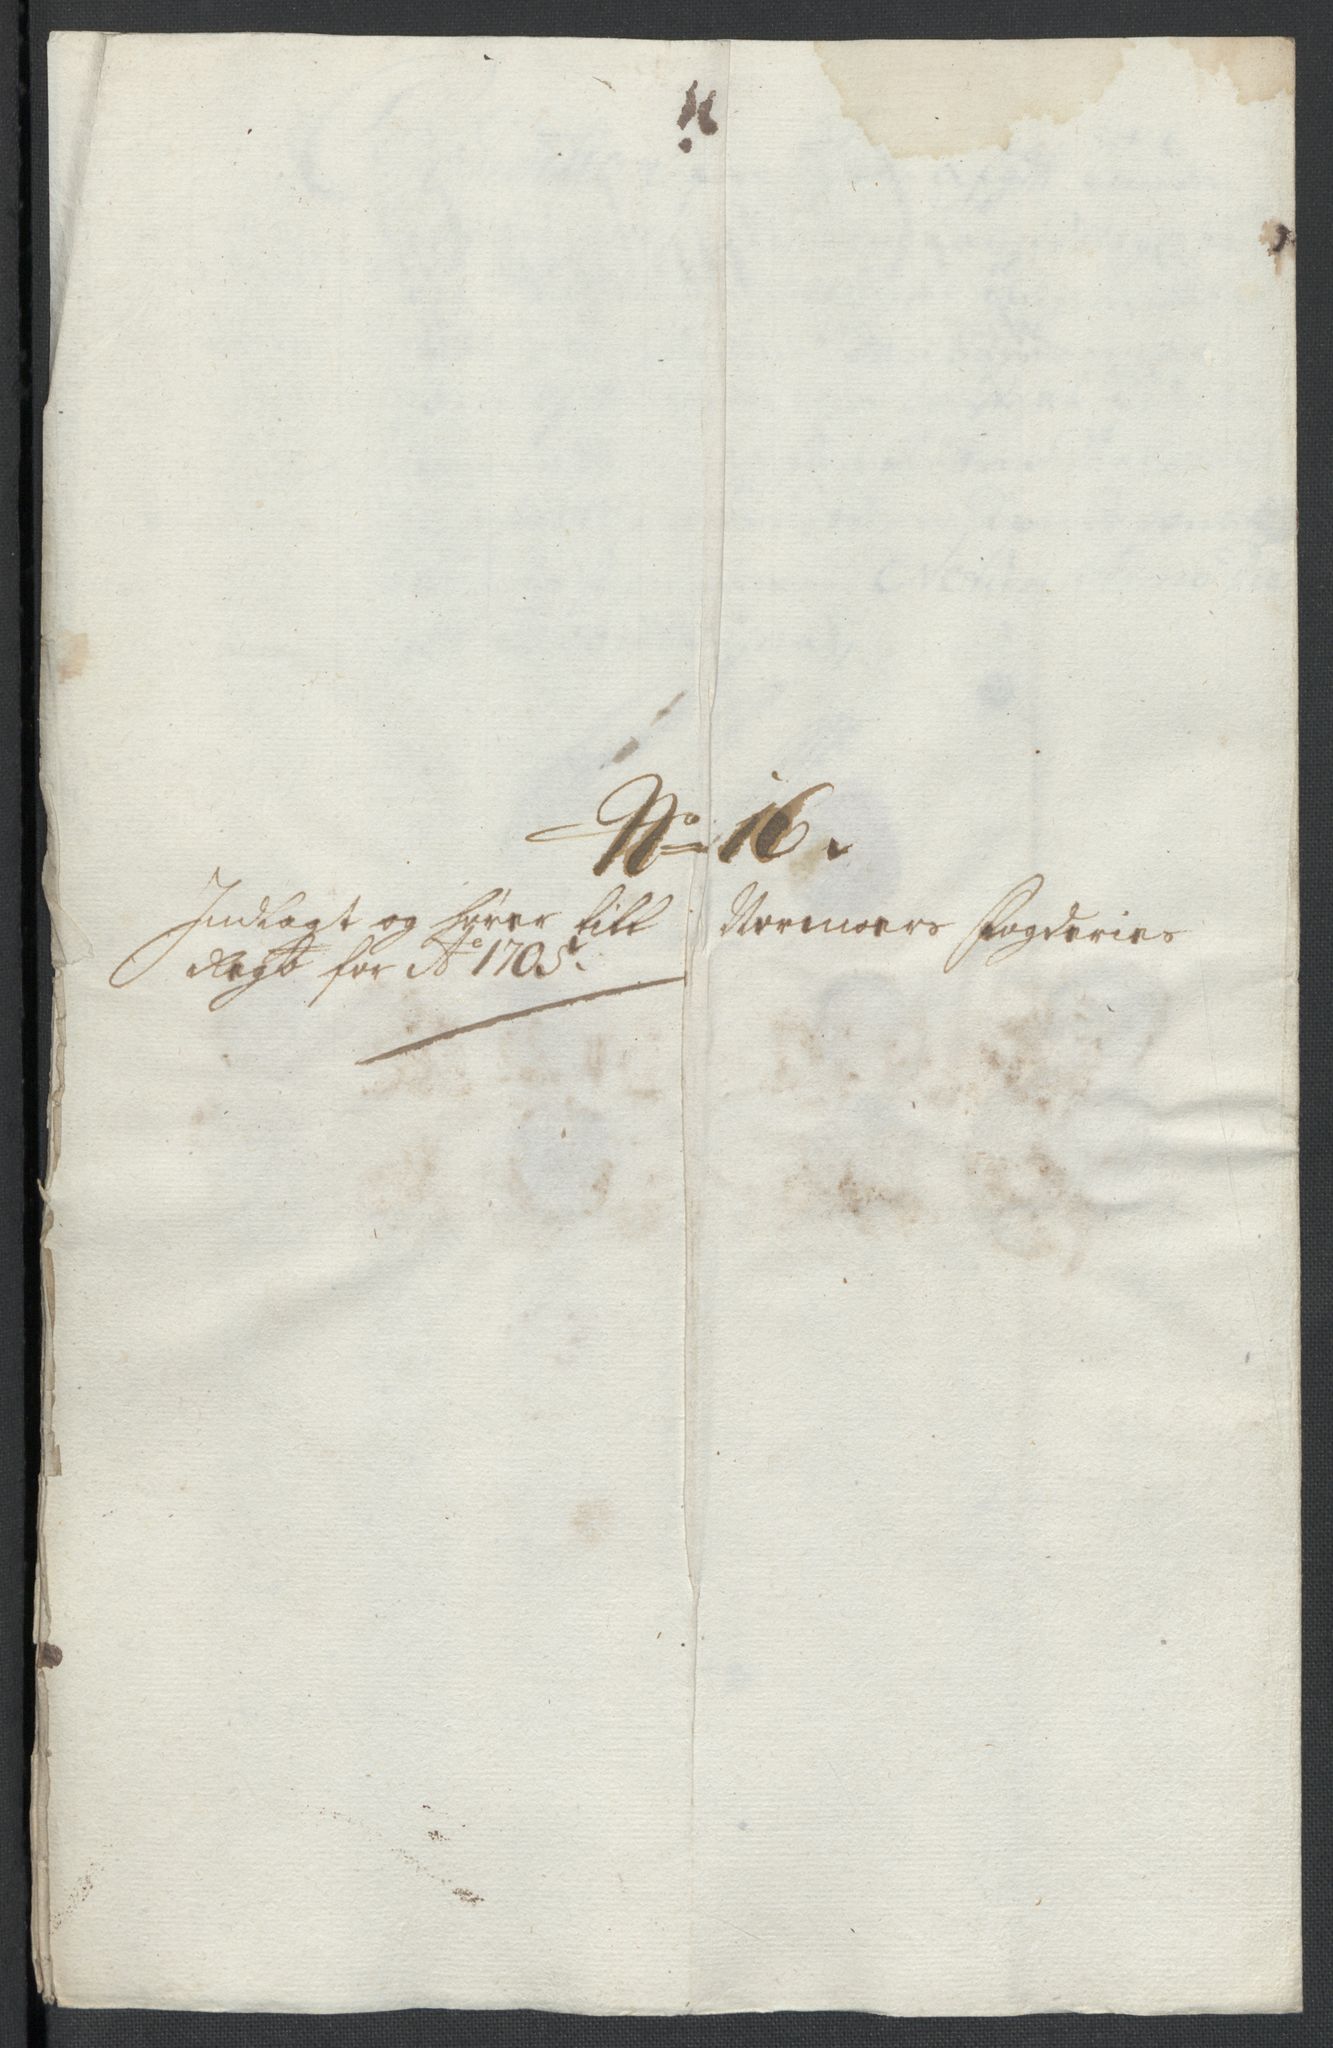 No 16.
Indlagt og hører till Normoers Fogderies
Regb for Ao 1705.